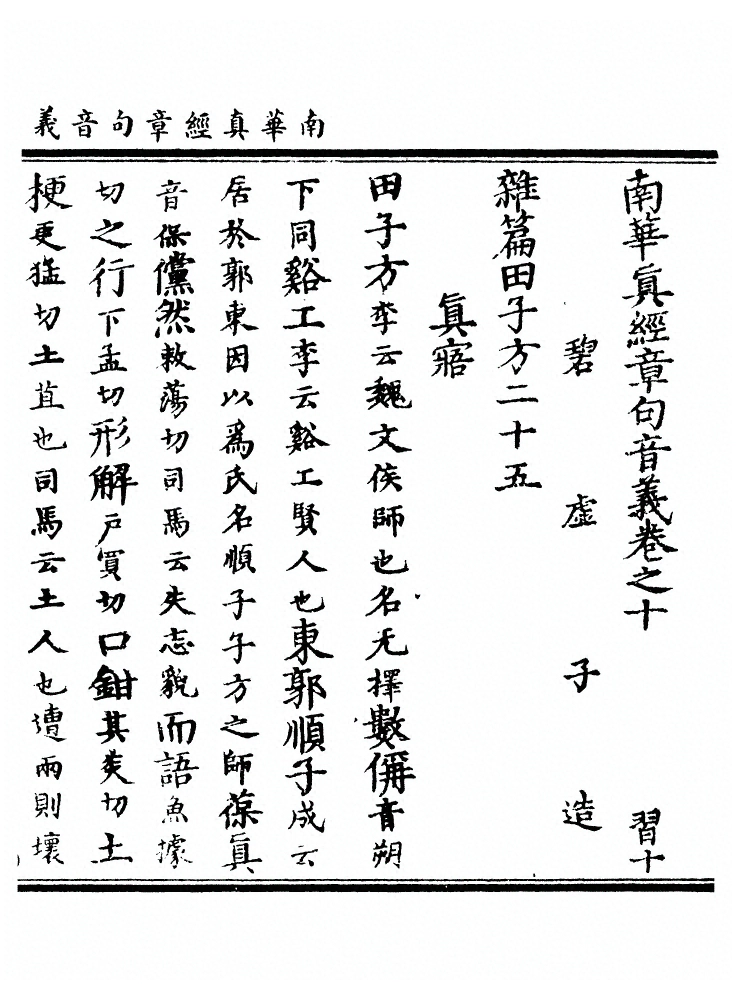 南華真經章句音義
南華眞經章句音義卷之十　習十
碧虛子造
雜篇田子方二十五
眞寤
田子方李云魏文侯師也名无擇數偁音朔
下同谿工李云谿工賢人也東郭順子成云
居於郭東因以爲氏名順子子方之師葆眞
音保儻然敕蕩切司馬云失志貌而語魚據
切之行下孟切形解戶買切口鉗其炎切土
梗更猛切土苴也司馬云土人也遭雨則壞